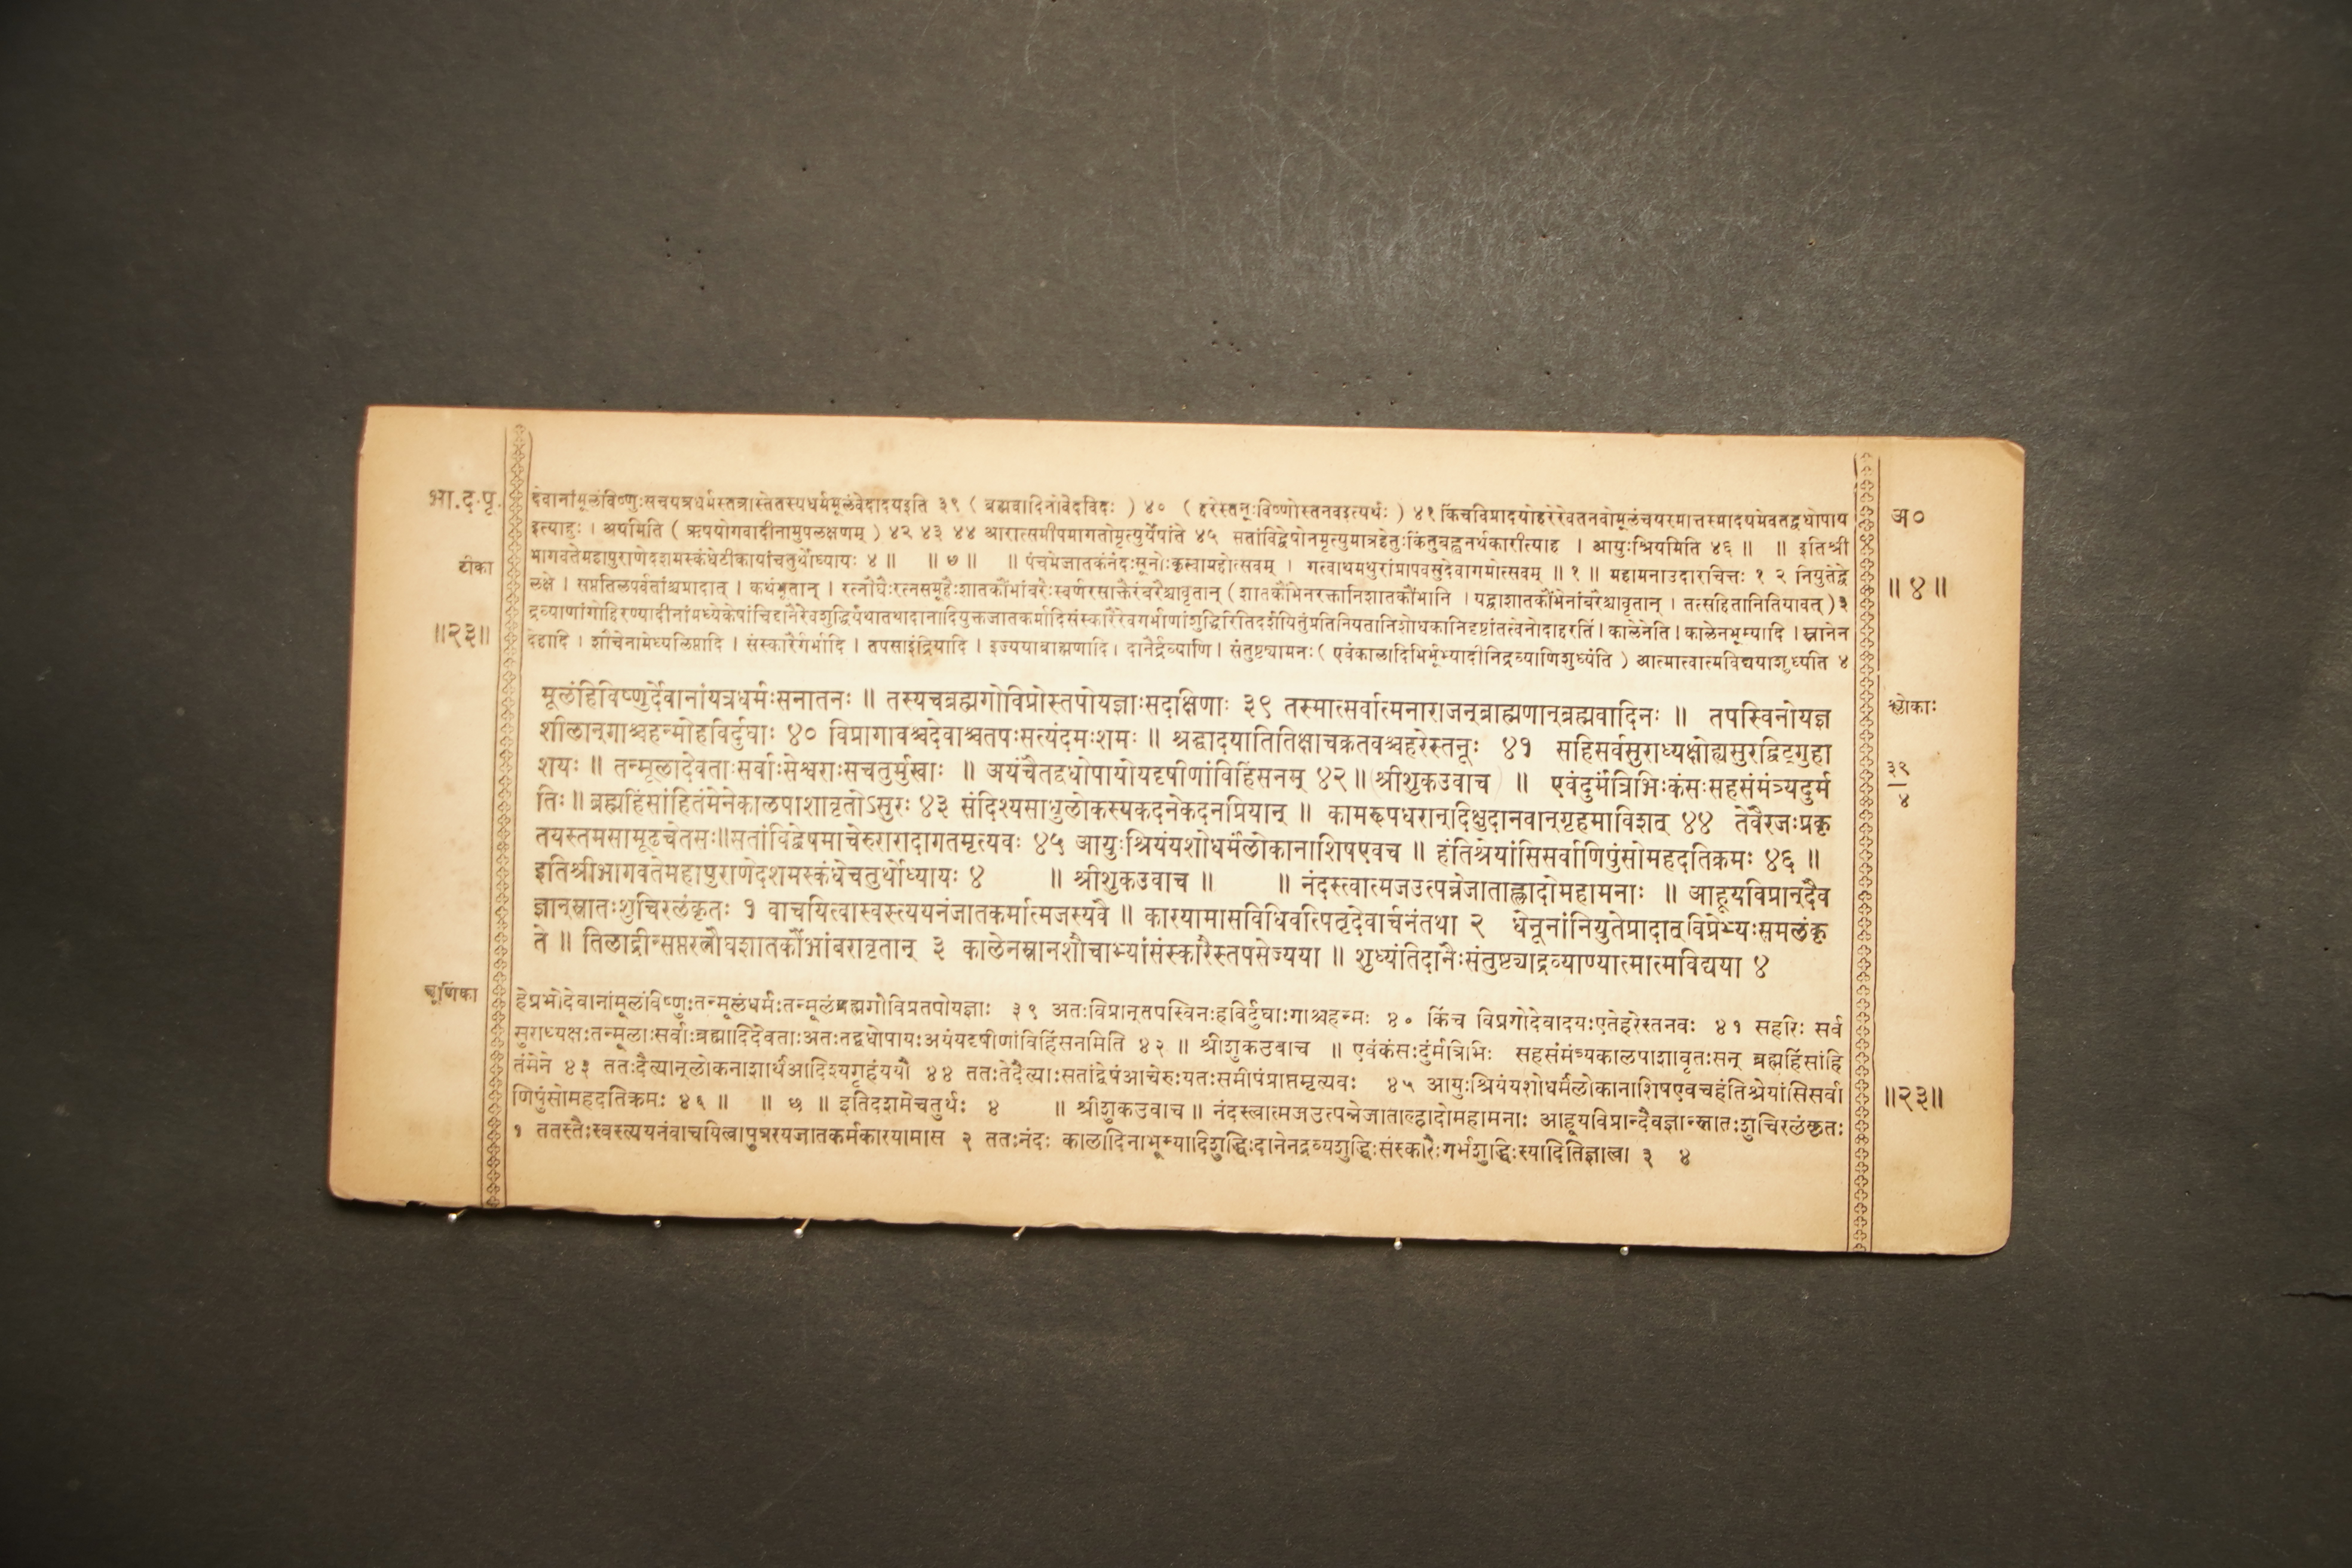 भा.द.पृ.
टीका
॥२३॥
चूर्णिका
देवानांमूलंविष्णुःसचयत्रधर्मस्तत्रास्तेतस्यधर्मस्यमूलंवेदादयइति ३९ ( ब्रह्मवादिनोवेदविदः ) ४० ( हरेस्तनूःविष्णोस्तनवइत्यर्थः ) ४१ किंचविप्रादयोहरेरेवतनवोमूलंचयस्मात्तस्मादयमेवतद्वधोपाय
इत्याहुः । अयमिति ( ऋषयोगवादीनामुपलक्षणम् ) ४२ ४३ ४४ आरात्समीपमागतोमृत्युर्येषांते ४५ सतांविद्वेषोनमृत्युमात्रहेतुःकिंतुबह्वनर्थकारीत्याह । आयुःश्रियमिति ४६ ॥ ॥ इतिश्री
भागवतेमहापुराणेदशमस्कंधेटीकायांचतुर्थोध्यायः ४ ॥ ॥ ७ ॥ ॥ पंचमेजातकंनंदःसूनोःकृत्वामहोत्सवम् । गत्वाथमथुरांप्रापवसुदेवागमोत्सवम् ॥ १ ॥ महामनाउदारचित्तः १ २ नियुतेद्वे
लक्षे । सप्ततिलपर्वतांश्चप्रादात् । कथंभूतान् । रत्नौघैःरत्नसमूहैःशातकौंभांबरैःस्वर्णरसाक्तैरंबरैश्चावृतान् ( शातकौंभेनरक्तानिशातकौंभानि । यद्वाशातकौंभेनांबरैश्चावृतान् । तत्सहितानितियावत् ) ३
द्रव्याणांगोहिरण्यादीनांमध्येकेषांचिद्दानैरेवशुद्धिर्यथातथादानादियुक्तजातकर्मादिसंस्कारैरेवगर्भाणांशुद्धिरितिदर्शयितुंप्रतिनियतानिशोधकानिदृष्टांतत्वेनोदाहरति । कालेनेति । कालेनभूम्यादि । स्नानेन
देहादि । शौचेनामेध्यलिप्तादि । संस्कारैर्गर्भादि । तपसाइंद्रियादि । इज्ययाब्राह्मणादि । दानैर्द्रव्याणि । संतुष्ट्यामनः ( एवंकालादिभिर्भूम्यादीनिद्रव्याणिशुध्यंति ) आत्मात्वात्मविद्ययाशुध्यति ४
मूलंहिविष्णुर्देवानांयत्रधर्मःसनातनः ॥ तस्यचब्रह्मगोविप्रोस्तपोयज्ञाःसदक्षिणाः ३९ तस्मात्सर्वात्मनाराजन्ब्राह्मणान्ब्रह्मवादिनः ॥ तपस्विनोयज्ञ
शीलान्गाश्चहन्मोहविर्दुघाः ४० विप्रागावश्चदेवाश्चतपःसत्यंदमःशमः ॥ श्रद्धादयातितिक्षाचक्रतवश्चहरेस्तनूः ४१ सहिसर्वसुराध्यक्षोह्यसुरद्विट्गुहा
शयः ॥ तन्मूलादेवताःसर्वाःसेश्वराःसचतुर्मुखाः ॥ अयंचैतद्वधोपायोयदृषीणांविहिंसनम् ४२ ॥ (श्रीशुकउवाच) ॥ एवंदुर्मंत्रिभिःकंसःसहसंमंत्र्यदुर्म
तिः ॥ ब्रह्महिंसांहितंमेनेकालपाशावृतोऽसुरः ४३ संदिश्यसाधुलोकस्यकदनेकदनप्रियान् ॥ कामरूपधरान्दिक्षुदानवान्गृहमाविशत् ४४ तेवैरजःप्रकृ
तयस्तमसामूढचेतसः॥सतांविद्वेषमाचेरुरारादागतमृत्यवः ४५ आयुःश्रियंयशोधर्मंलोकानाशिषएवच ॥ हंतिश्रेयांसिसर्वाणिपुंसोमहदतिक्रमः ४६ ॥
इतिश्रीभागवतेमहापुराणेदशमस्कंधेचतुर्थोध्यायः ४ ॥ श्रीशुकउवाच ॥ ॥ नंदस्त्वात्मजउत्पन्नेजाताह्लादोमहामनाः ॥ आहूयविप्रान्दैव
ज्ञान्स्नातःशुचिरलंकृतः १ वाचयित्वास्वस्त्ययनंजातकर्मात्मजस्यवै ॥ कारयामासविधिवत्पितृदेवार्चनंतथा २ धेनूनांनियुतेप्रादाद्विप्रेभ्यःसमलंकृ
ते ॥ तिलाद्रीन्सप्तरत्नौघशातकौंभांबरावृतान् ३ कालेनस्नानशौचाभ्यांसंस्कारैस्तपसेज्यया ॥ शुध्यंतिदानैःसंतुष्ट्याद्रव्याण्यात्मात्मविद्यया ४
हेप्रभोदेवानांमूलांविष्णुःतन्मूलंधर्मःतन्मूलंब्रह्मगोविप्रतपोयज्ञाः ३९ अतःविप्रान्तपस्विनःहविर्दुघाःगाश्चहन्मः ४० किंच विप्रगोदेवादयःएतेहरेस्तनवः ४१ सहरिः सर्व
सुराध्यक्षःतन्मूलाःसर्वाःब्रह्मादिदेवताःअतःतद्वधोपायःअयंयदृषीणांविहिंसनमिति ४२ ॥ श्रीशुकउवाच ॥ एवंकंसःदुर्मंत्रिभिः सहसंमंत्र्यकालपाशावृतःसन् ब्रह्महिंसांहि
तंमेने ४३ ततःदैत्यान्लोकनाशार्थंआदिश्यगृहंययौ ४४ ततःतेदैत्याःसतांद्वेषंआचेरुःयतःसमीपंप्राप्तमृत्यवः ४५ आयुःश्रियंयशोधर्मंलोकानाशिषएवचहंतिश्रेयांसिसर्वा
णिपुंसोमहदतिक्रमः ४६ ॥ ॥ ७ ॥ इतिदशमेचतुर्थः ४ ॥ श्रीशुकउवाच ॥ नंदस्त्वात्मजउत्पन्नेजाताल्हादोमहामनाः आहूयविप्रान्दैवज्ञान्स्नातःशुचिरलंकृतः
१ ततस्तैःस्वस्त्ययनंवाचयित्वापुत्रस्यजातकर्मकारयामास २ ततःनंदः कालादिनाभूम्यादिशुद्धिःदानेनद्रव्यशुद्धिःसंस्कारैःगर्भशुद्धिःस्यादितिज्ञात्वा ३ ४
अ०
॥४॥
श्लोकाः
३९
४
॥२३॥